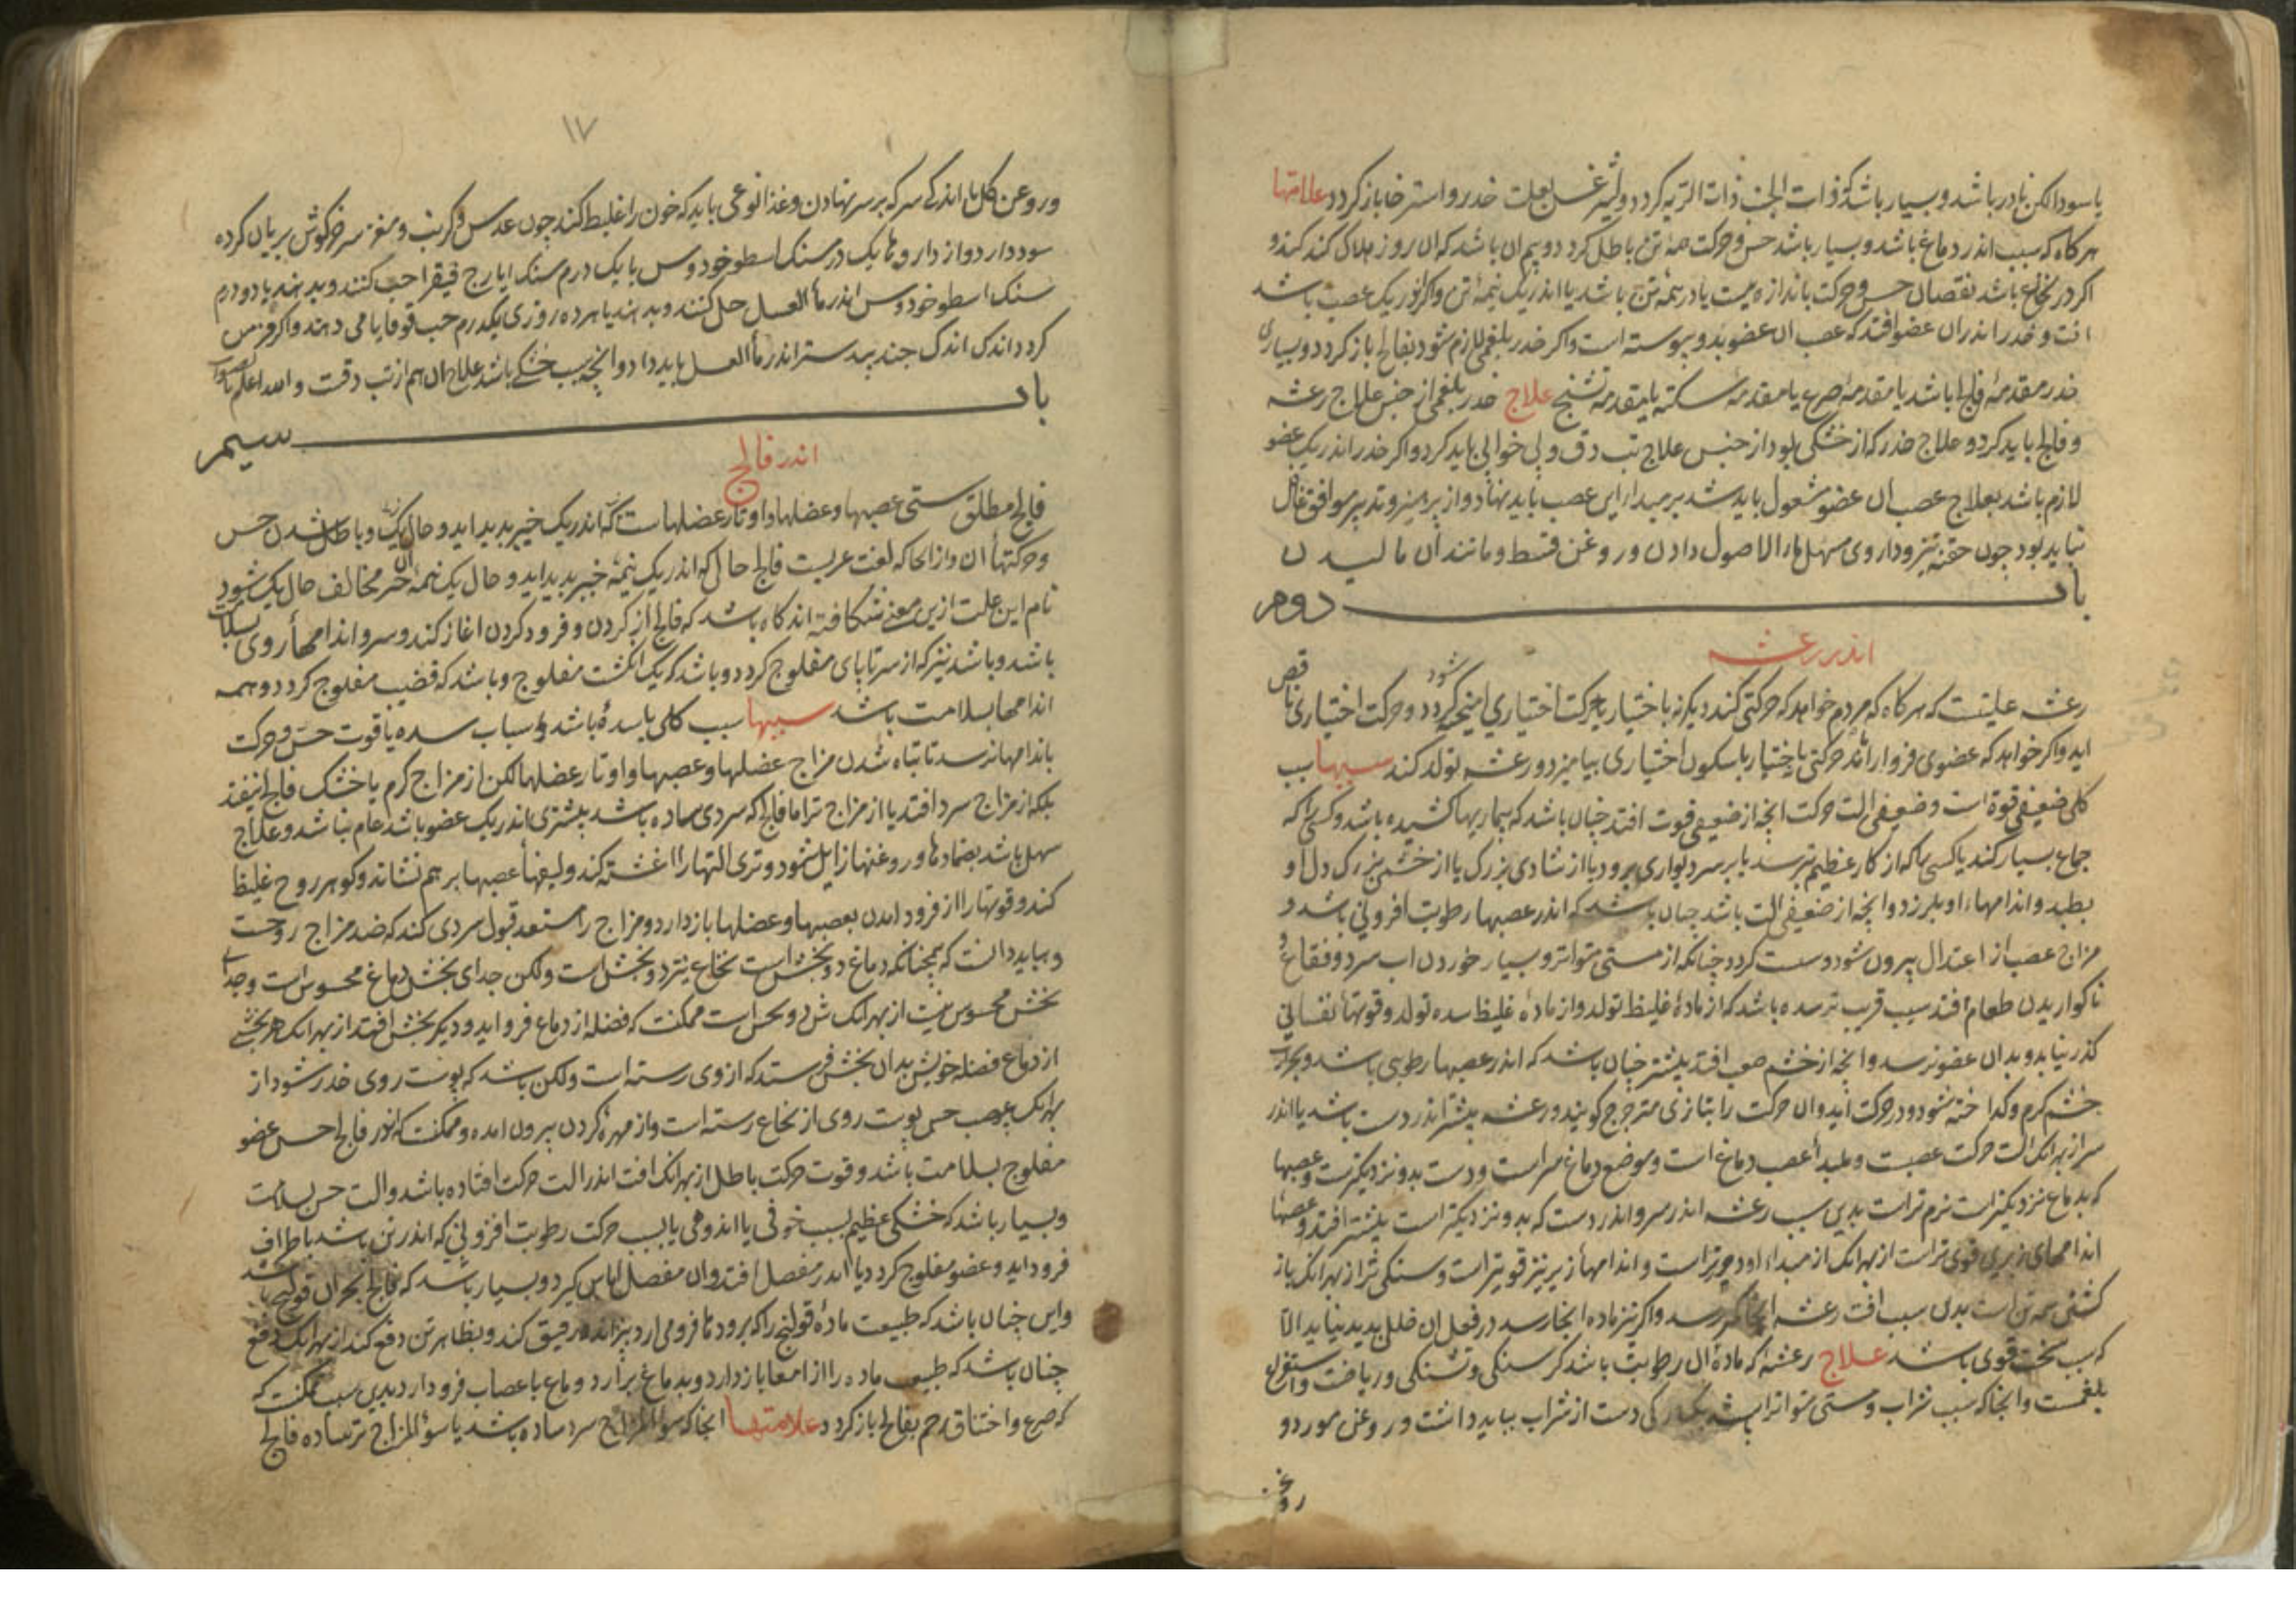 یا سودا لکن نادر باشد و بسیار باشد که ذات الجنب ذات الریه کردد و لیثرغس بعلت خدر و استرخا باز کردد علامتها
هر کاه که سبب اندر دماغ باشد و بسیار باشد حس و حرکت همه تن باطل کردد و بیم ان باشد که ان روز هلاک کند کند و
اکر در نخاع باشد نقصان حس و حرکت باندازه یا در همه تن باشد یا اندر یک نیمه تن و اکر اندر یک عصب باشد
افت و خدر اندران عضو افتد که عصب ان عضو بدو پیوسته است و اکر خدر بلغمی لازم شود بفالج باز کردد و بسیاری
خدر مقدمه فالج باشد یا مقدمه صرع یا مقدمه سکته یا مقدمه تشنج علاج خدر بلغمی از جنس علاج رعشه
و فالج باید کرد و علاج خدر که از خشکی بود از جنس علاج تب دق و بی خوابی باید کرد و اکر خدر اندر یک عضو
لازم باشد بعلاج عصب ان عضو مشغول باید شد بر مبدا این عصب باید نهاد و از پرهیز و تدبیر موافق غافل
نباید بود چون حقنه تیز و داروی مسهل ماء الاصول دادن و روغن قسط و مانند ان مالیدن
باب دوم
اندر رعشه
رعشه علتیست که هر کاه که مردم خواهد که حرکتی کند دیکر نه باختیار با حرکت اختیاری امیخته شود کردد و حرکت اختیاری ناقص
اید و اکر خواهد که عضوی فرو دارد حرکتی باختیار با سکون اختیاری بیامیزد و رعشه تولد کند سببها سبب
کلی ضعیفی قوة است و ضعیفی الت حرکت انچه از ضعیفی قوت افتد چنان باشد که بیماریها کشیده باشد و کسی را که
جماع بسیار کند یا کسی را که از کار عظیم بترسد یا بر سر دیواری برود یا از شادی بزرک یا از خشم بزرک دل او
بطپد و اندامهای او بلرزد و انچه از ضعیفی الت باشد چنان باشد که اندر عصبها رطوبت افزونی باشد و
مزاج عصب از اعتدال بیرون شود و سست کردد چنانکه از مستی متواتر و بسیار خوردن اب سرد و فقاع و
ناکواریدن طعام افتد سبب قریب تر سده باشد که از مادهٔ غلیظ تولد و از مادهٔ غلیظ سده تولد و قوتهای نفسانی
کذر نیابد و بدان عضو نرسد و انچه از خشم صعب افتد بیشتر چنان باشد که اندر عصبها رطوبتی باشد و بحرارت
خشم کرم و کداخته شود و در حرکت اید و ان حرکت را بتازی مترجرج کویند و رعشه بیشتر اندر دست باشد یا اندر
سر از بهر انک الت حرکت عصبست و مبدأ عصب دماغ است و موضع دماغ سر است و دست بدو نزدیکترست و عصبها
که بدماغ نزدیکتر است نرم تر است بدین سبب رعشه اندر سر و اندر دست که بدو نزدیکتر است بیشتر افتد و عصبهای
اندامهای زیرین قوی تر است از بهر انک از مبداء او دورتر است و اندامهای زیرین نیز قویتر است و سنکی تر از بهر انک باز
کشنی همه تن است بدین سبب افت رعشه انجا کمتر رسد و اکر نیز ماده انجا رسد در فعل ان خلل پدید نیاید الا
که سبب سخت قوی باشد علاج رعشه که مادهٔ ان رطوبت باشد کرسنکی و تشنکی و ریاضت و استفراغ
بلغمست و انجا که سبب شراب و مستی متواتر باشد دست از شراب بباید داشت و روغن مورد و
روغن
۱۷
و روغن کل با اندکی سرکه بر سر نهادن و غذا نوعی باید که خون را غلیظ کند چون عدس و کرنب و مغز سر خرکوش بریان کرده
سود دارد و از داروها یک درمسنک اسطوخودوس با یک درم سنک ایارج فیقرا حب کنند و بدهند یا دو درم
سنک اسطوخودوس اندر ماء العسل حل کنند و بدهند یا هر ده روزی یکدرم حب قوقایا می دهند و اکر مزمن
کردد اندک اندک جند بیدستر اندر ماء العسل باید داد و انچه بسبب خشکی باشد علاج ان هم از تب دقست و الله اعلم بالصواب
باب سیم
اندر فالج
فالج مطلق سستی عصبها و عضلها و اوتار عضلهاست که اندر یک خبر پدید اید و حال یک و باطل شدن حس
و حرکتهای ان و از انجا که لغت عربست فالج حالی که اندر یک نیمه خبر پدید اید و حال یک نیمه ان خبر مخالف حال یک شود
نام این علت ازین معنی شکافته اند کاه باشد که فالج از کردن و فرود کردن اغاز کند و سر و اندامهای روی بسلامت
باشد و باشد نیز که از سر تا پای مفلوج کردد و باشد که یک انکشت مفلوج و باشد که قضیب مفلوج کردد و همه
اندامها بسلامت باشد سببها سبب کلی یا سدهٔ باشد و اسباب سده یا قوت حس و حرکت
باندامها نرسد تا تباه شدن مزاج عضلها و عصبها و اوتار عضلها لکن از مزاج کرم یا خشک فالج نیفتد
بلکه از مزاج سرد افتد یا از مزاج تر اما فالج که سردی ساده باشد بیشتری اندر یک عضو باشد عام نباشد و علاج
سهل باشد بضمادها و روغنها زایل شود و تری التها را اغشته کند و لیفهای عصبها بر هم نشاند و کوهر روح غلیظ
کند و قوتها را از فرود امدن بعصبها و عضلها باز دارد و مزاج را مستعد قبول سردی کند که ضد مزاج روحست
و بباید دانست که همچنانکه دماغ دو بخش است نخاع نیز دو بخش است ولکن جدای بخش دماغ محسوس است و جدای
بخش محسوس نیست از بهر انک ممکنست که فضله از دماغ فرو اید و دیکر بخش افتد از بهر انک هر بخشی
از دماغ فضله خویش بدان بخش فرستد که از وی رسته است ولکن باشد که پوست روی خدر شود از
بهر انک عصب حس پوست روی از نخاع رسته است و از مهرهٔ کردن بیرون امده و ممکنست که اندر فالج حس عضو
مفلوج بسلامت باشد و قوت حرکت باطل از بهر انک افت اندر الت حرکت افتاده باشد و الت حس بسلامت
و بسیار باشد که خشکی عظیم بسبب خوفی یا اندوهی یا بسبب حرکت رطوبت افزونی که اندر تن باشد باطراف
فرود اید و عضو مفلوج کردد یا اندر مفصل افتد و ان مفصل اماس کیرد و بسیار باشد که فالج بحران قولنج باشد
و این چنان باشد که طبیعت مادهٔ قولنج را که برودها فرو می ارد بپزاند و رقیق کند و بظاهر تن دفع کند از بهر انک دفع
چنان باشد که طبیعت ماده را از امعا باز دارد و بدماغ برارد و دماغ باعصاب فرود ارد بدین سبب ممکنست که
که صرع و اختناق رحم بفالج باز کردد علامتها انجا که سوء المزاج سرد ساده باشد یا سوء المزاج تر ساده فالج